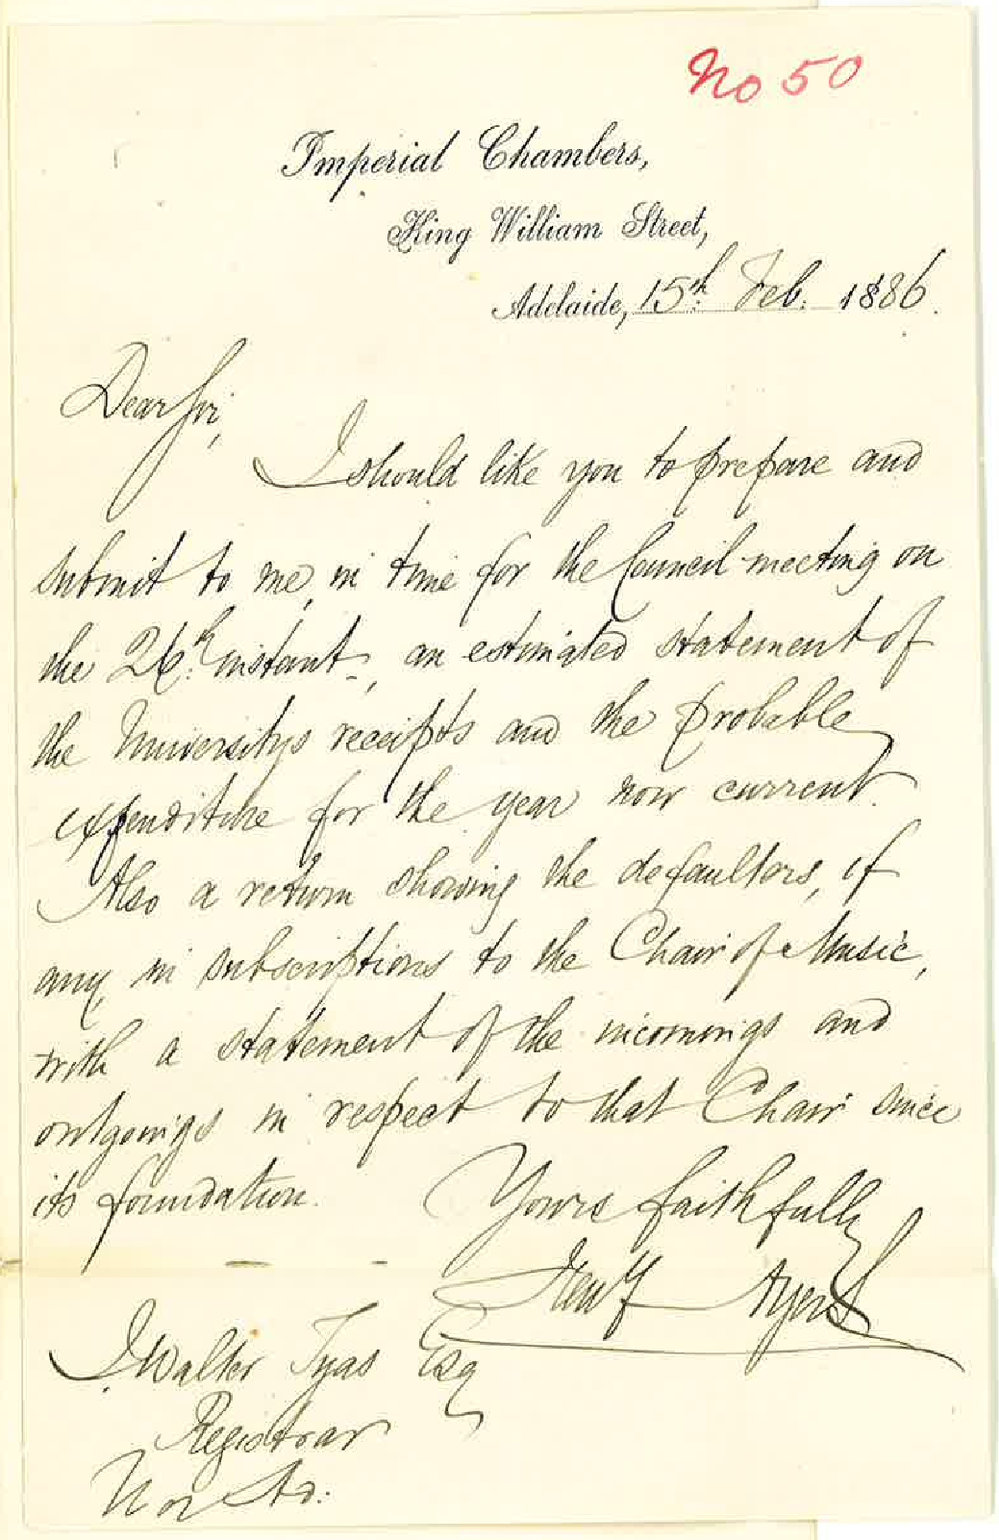 No 50
Imperial Chambers,
King William Street,
Adelaide, 15th. Feb. 1886.
Dear Sir,
I should like you to prepare and
submit to me, in time for the Council meeting on
the 26th. instant, an estimated statement of
the Universitys receipts and the probable
expenditure for the year now current.
Also a return showing the defaulters, if
any, in subscriptions to the Chair of Music,
with a statement of the incomings and
outgoings in respect to that Chair since
its foundation.
Yours faithfully
Heny Ayers
J. Walter Tyas Esq
Registrar
Uny Ad: